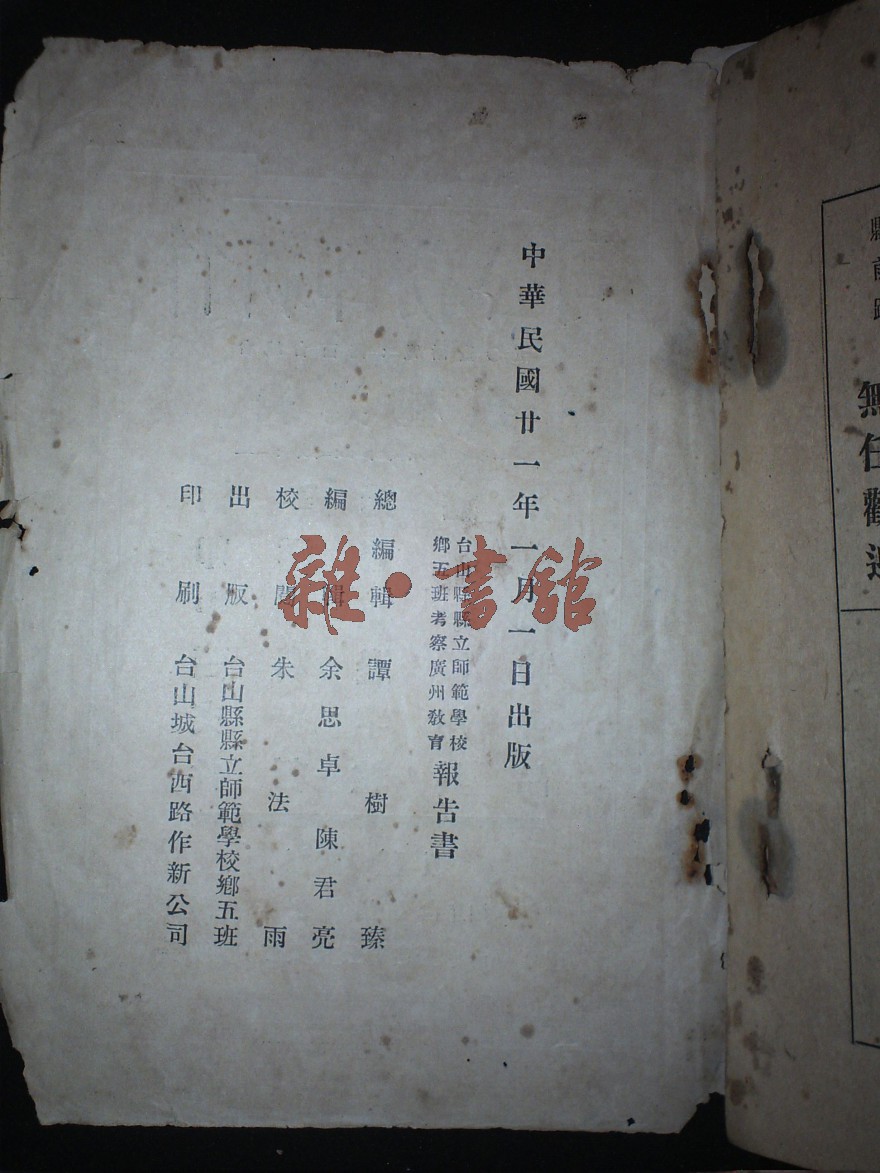 縣前
無任歡迎
中華民國廿一年一月一日出版
台山縣縣立師範學校
鄉五班考察廣州教育
報告書
總編輯 譚樹臻
編輯 余思卓 陳君亮
校閱 朱法雨
出版 台山縣縣立師範學校鄉五班
印刷 台山城台西路作新公司
雜·書館